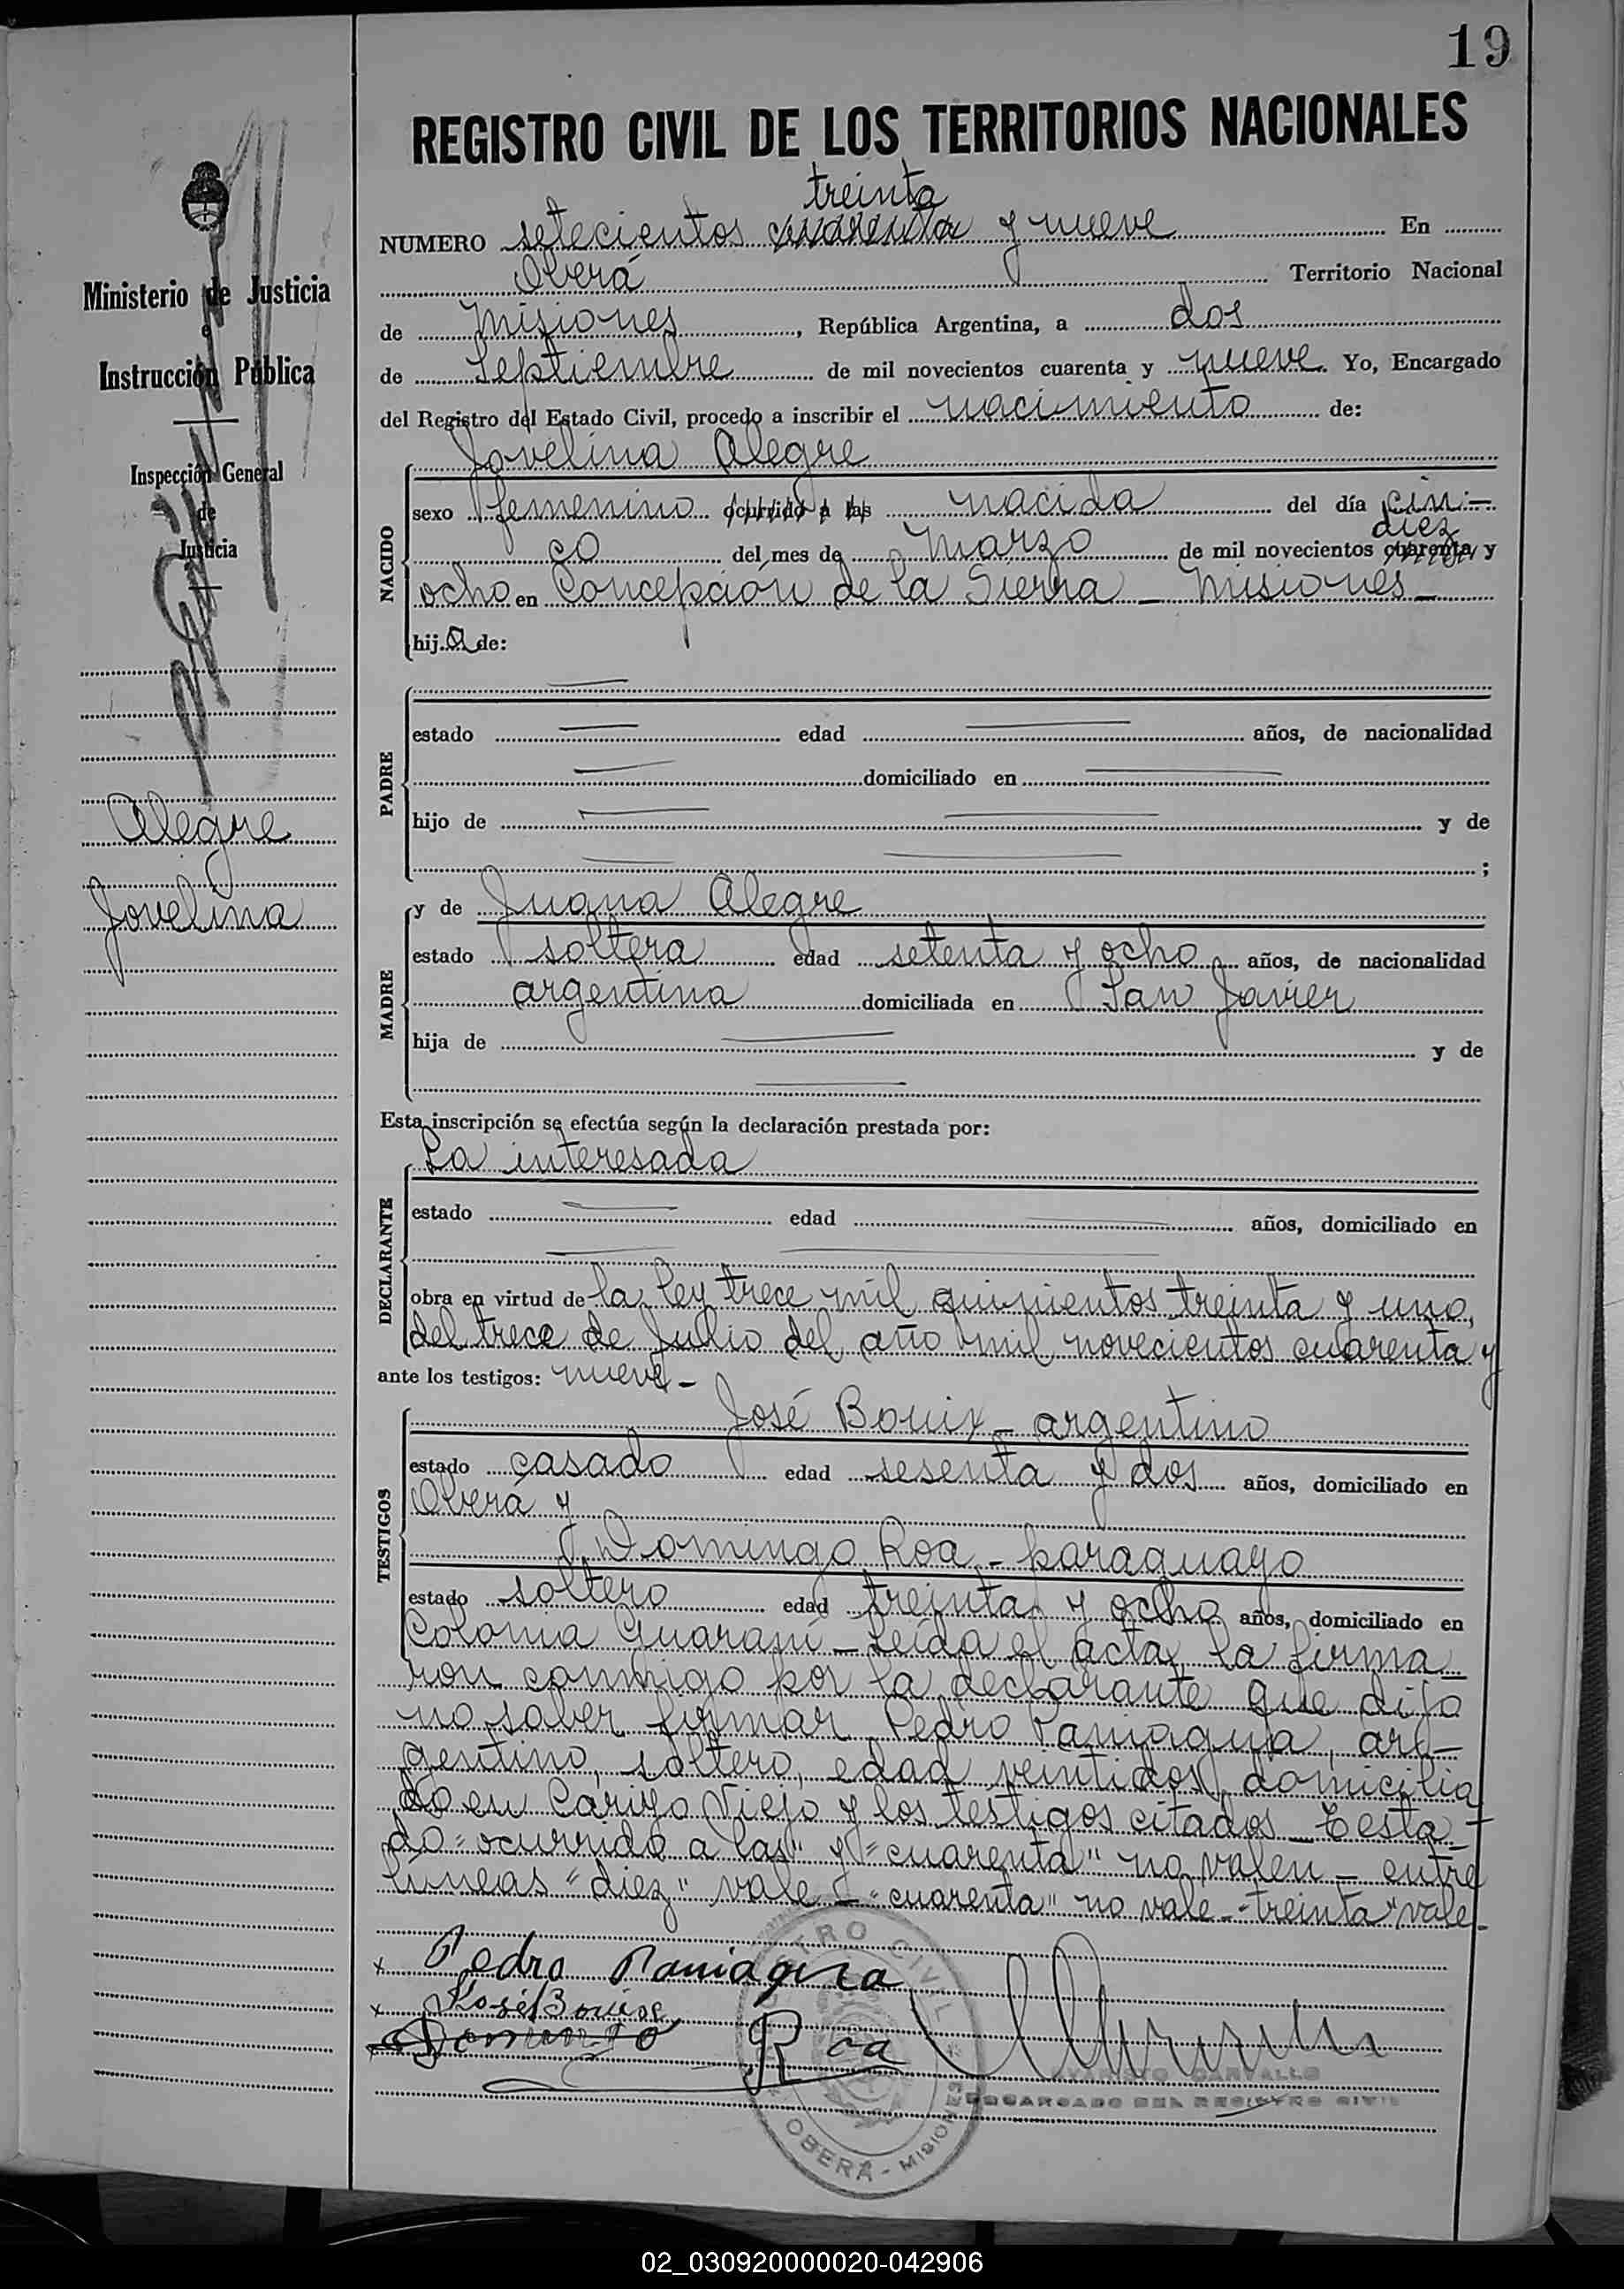 19
REGISTRO CIVIL DE LOS TERRITORIOS NACIONALES
treinta
NUMERO setecientos cuarenta y nueve En
Oberá Territorio Nacional
de Misiones, República Argentina, a dos
de Septiembre de mil novecientos cuarenta y nueve. Yo, Encargado
del Registro del Estado Civil, procedo a inscribir el nacimiento de:
Jovelina Alegre
NACIDO
sexo femenino ocurrido a las nacida del día cin-
diez
co del mes de Marzo de mil novecientos cuarenta y
ocho en Concepción de la Sierra - Misiones -
hija de:
PADRE
estado edad años, de nacionalidad
domiciliado en
hijo de y de
;
MADRE
y de Juana Alegre
estado soltera edad setenta y ocho años, de nacionalidad
argentina domiciliada en San Javier
hija de y de
Esta inscripción se efectúa según la declaración prestada por:
DECLARANTE
La interesada
estado edad años, domiciliado en
obra en virtud de la Ley trece mil quinientos treinta y uno,
del trece de Julio del año mil novecientos cuarenta y
ante los testigos: nueve -
TESTIGOS
José Bouix - argentino
estado casado edad sesenta y dos años, domiciliado en
Oberá y
Domingo Roa - paraguayo
estado soltero edad treinta y ocho años, domiciliado en
Colonia Guaraní - Leída el acta, la firma-
ron conmigo por la declarante que dijo
no saber firmar Pedro Paniagua, ar-
gentino, soltero, edad veintidos, domicilia
do en Viejo y los testigos citados - Testa-
do "ocurrido a las" y "cuarenta" no valen - entre
líneas "diez" vale - "cuarenta" no vale - "treinta" vale -
x Pedro Paniagua
x José Bouix
Domingo Roa
CARVALLO
ENCARGADO DEL REGISTRO CIVIL
REGISTRO CIVIL
OBERÁ - MISIONES
Ministerio de Justicia
e
Instrucción Pública
Inspección General
de
Justicia
Alegre
Jovelina
02_030920000020-042906